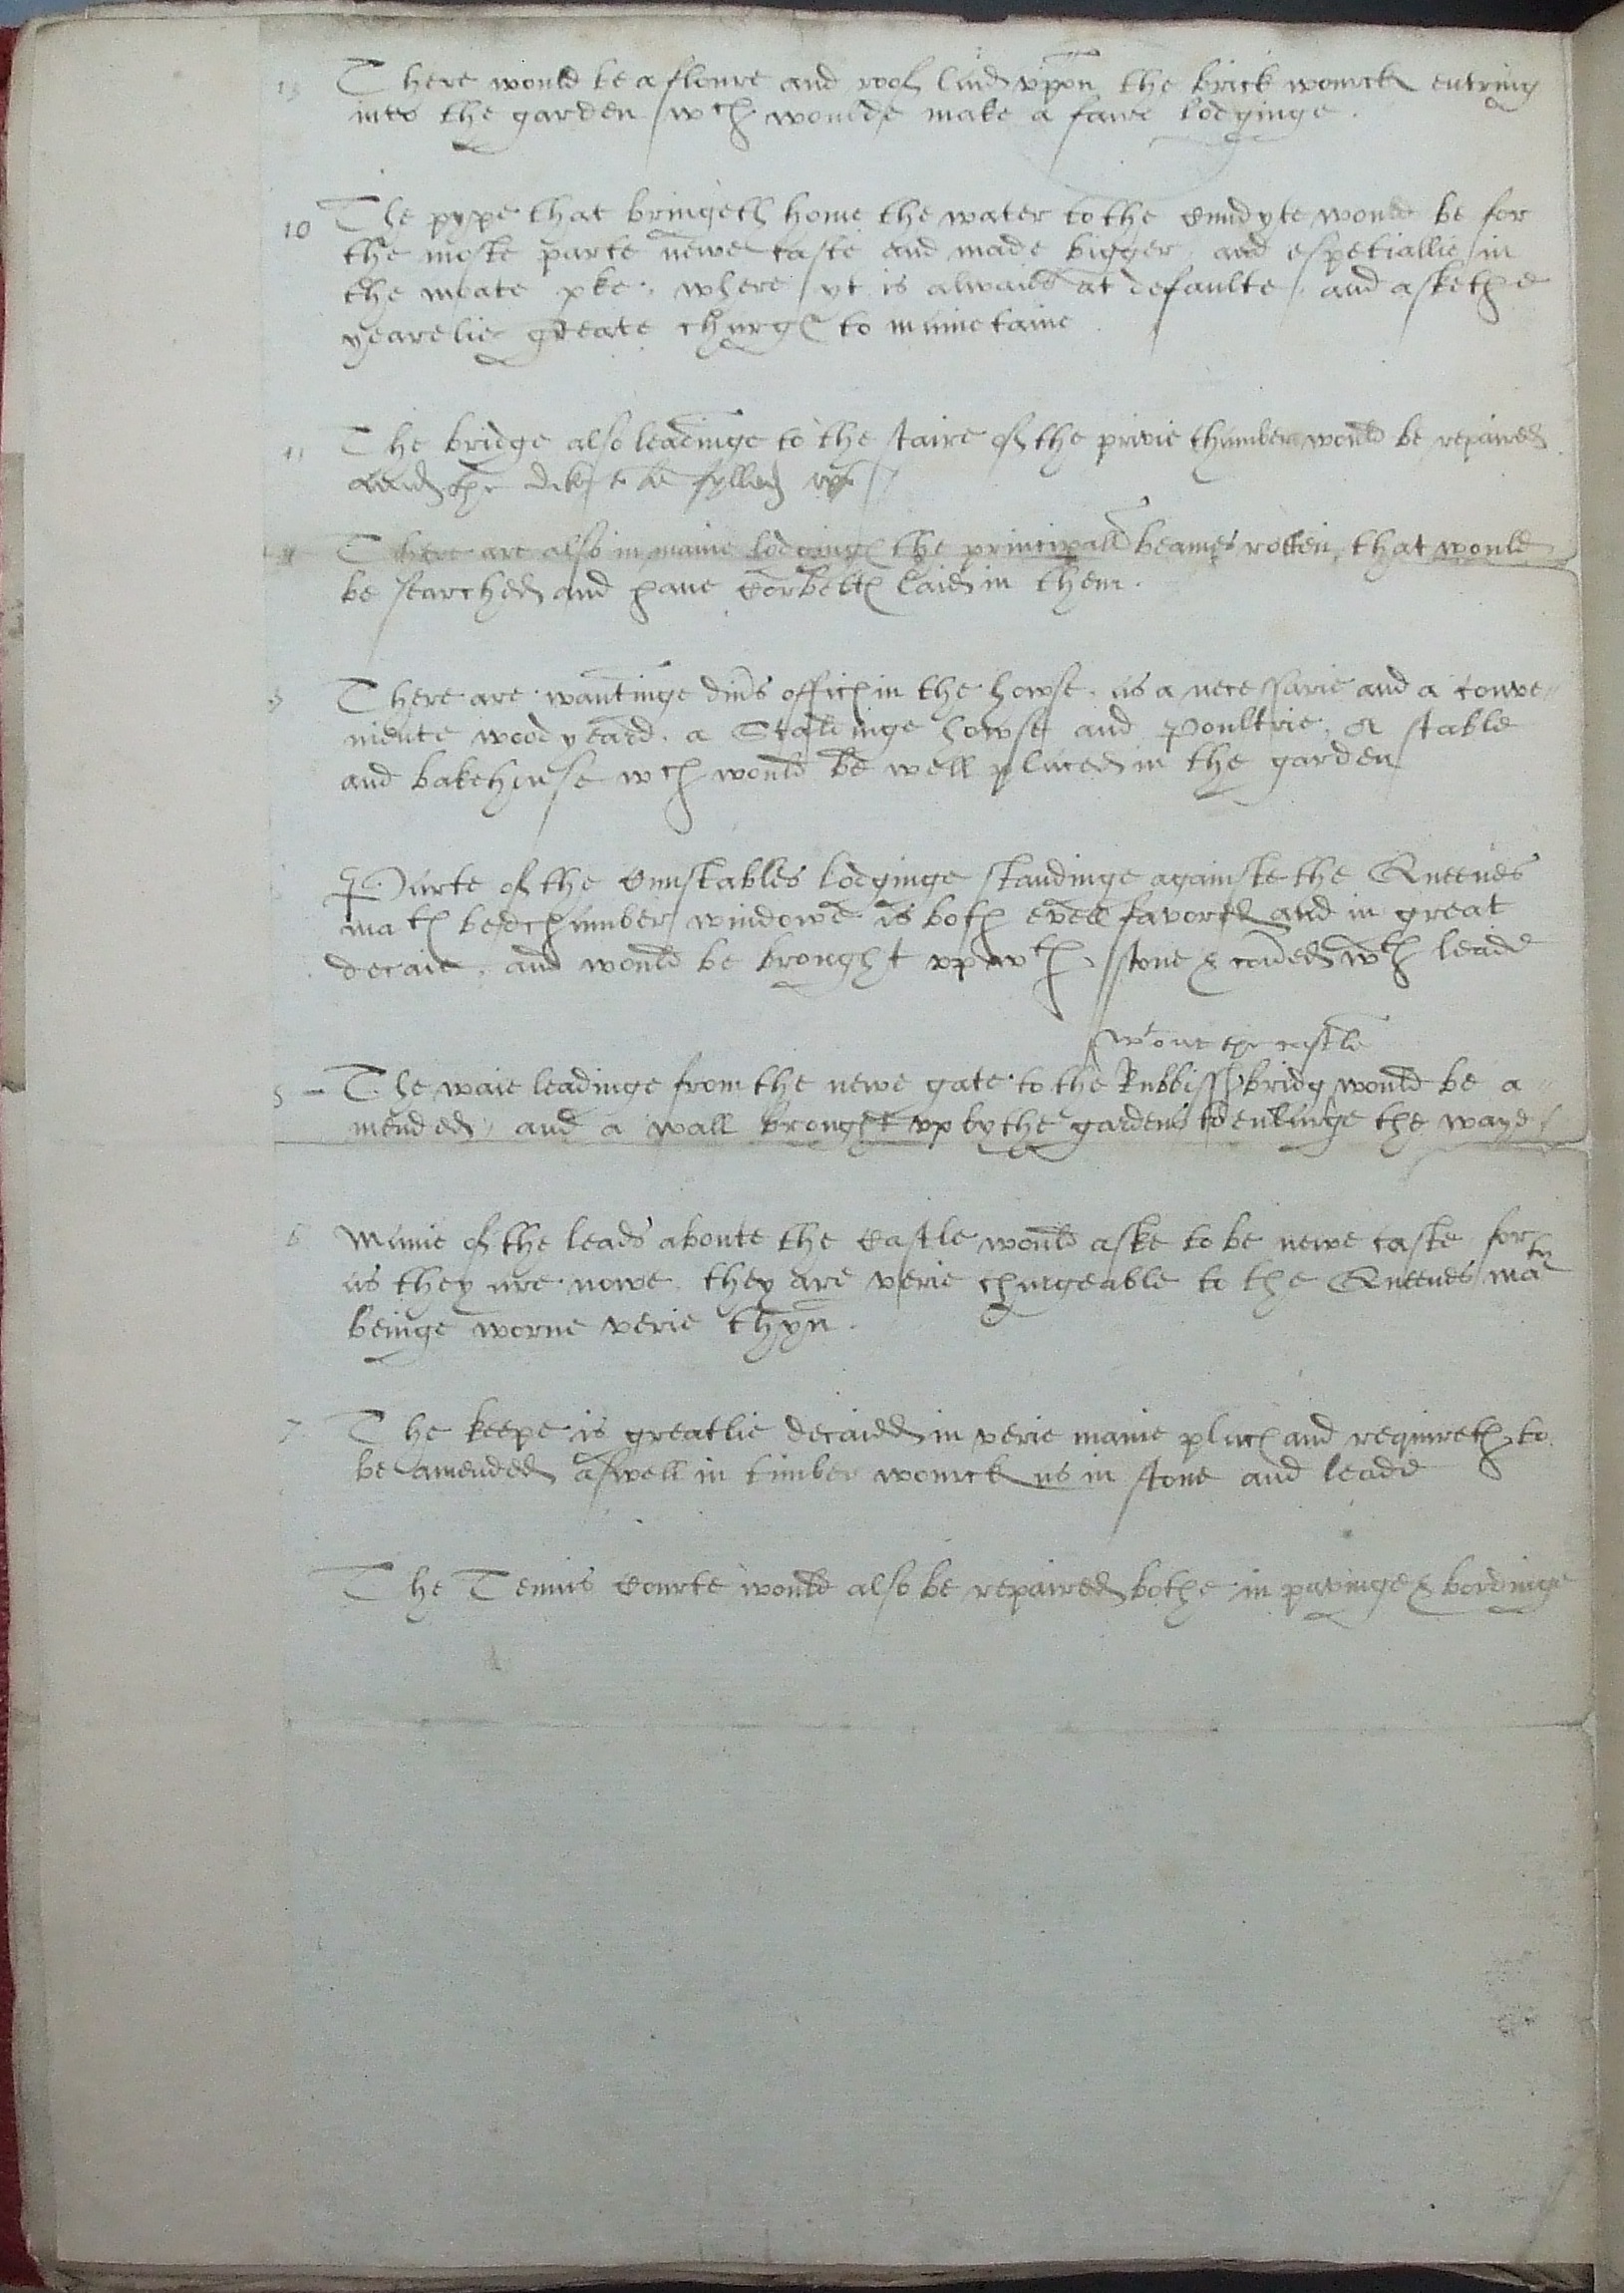 13 There would be a floure and roof laid vppon the brick wourck entring
into the garden wch woulde make a faire lodginge.
10 The pype that bringeth home the water to the Cundyte would be for
the moste parte newe caste and made bigger, and espetiallie in
the moate pke, where yt is alwaies at defaulte, and askethe
yearelie greate charge to mainetaine.
11 The bridge also leadinge to the staire of the privie chamber would be repaired
and the dike to be fylled vp
There are also in manie lodginges the principall beames rotten, that would
be searched and haue Corbettes laied in them.
3 There are wantinge diuers offices in the howse, as a necessarie and a conve-
niente wood yeard, a Scaldinge howse and Poultrie, a stable
and bakehouse wch would be well placed in the garden
Parte of the Cunstables lodginge standinge againste the Queenes
maties bedchamber windowe is both evell favored and in great
decaie, and would be brought vp wth stone & couered wth leade
wtout the castle
5 - The waie leadinge from the newe gate to the Rubbissh bridg would be a-
mended, and a wall brought vp by the gardens to enlarge the waye
6 Manie of the leads aboute the Castle would aske to be newe caste, for
as they are nowe, they are verie chargeable to the Queenes matie
beinge worne verie thyn.
7 The keepe is greatlie decaied in verie manie places and requireth to
be amended aswell in timber wourck as in stone and leade
The Tennis Courte would also be repaired bothe in pavinge & bordinge